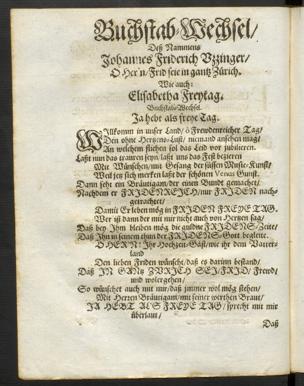 Buchstab-Wechsel/
Deß Nammens
Johannes Friderich Vzzinger/
O Her'n/Frid seie in gantz Zürich.
Wie auch:
Elisabetha Freytag.
Buchstab-Wechsel.
Ja hebt als freye Tag.
Willkomm in unser Land/ ô Freudenreicher Tag/
Den ohne Hertzens-Lust/ niemand ansehen mag/
An welchem stiehen sol das Leid vor jubilieren.
Laßt nun das trauren seyn/ laßt uns das Fest bezieren
Mit Wünschen/ mit Gesang der süssen Music-Kunst/
Weil jetzt sich merken laßt der schönen Venus Gunst.
Dann seht ein Bräutigam/ der einen Bundt gemachet/
Nachdem er FRIDENREICH/ nur FRIDEN nach-
getrachtet/
Damit Er leben mög in FRIDEN FREYE TAG.
Wer ist dann der mit mir nicht auch von Hertzen sag/
Daß bey Jhm bleiben mög die guldne FRIDENS-Zeite/
Daß Jhn in seinem thun der FRIDENS-Gott begleite.
O HERN! Jhr Hochzeit-Gäst/ wie ihr dem Vatter-
land
Den lieben Friden wünscht/ daß es darinn bestand/
Daß IN GANTZ ZVRICH SEJ FRJD/ Freud/
und wolergehen/
So wünschet auch mit mir/ daß jmmer wol mög stehen/
Mit Hertzen Bräutigam/ mit seiner werthen Braut/
JA HEBT ALS FREYE TAG/ sprecht mit mir
überlaut/
Daß